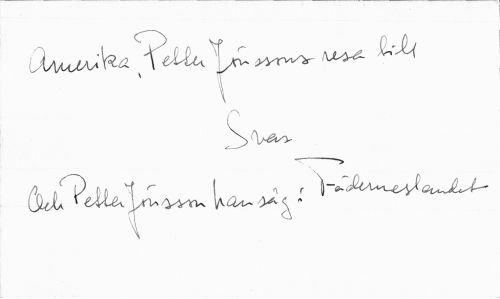 Amerika, Petter Jönssons resa till
Svar
Och Petter Jönsson han såg i Fäderneslandet